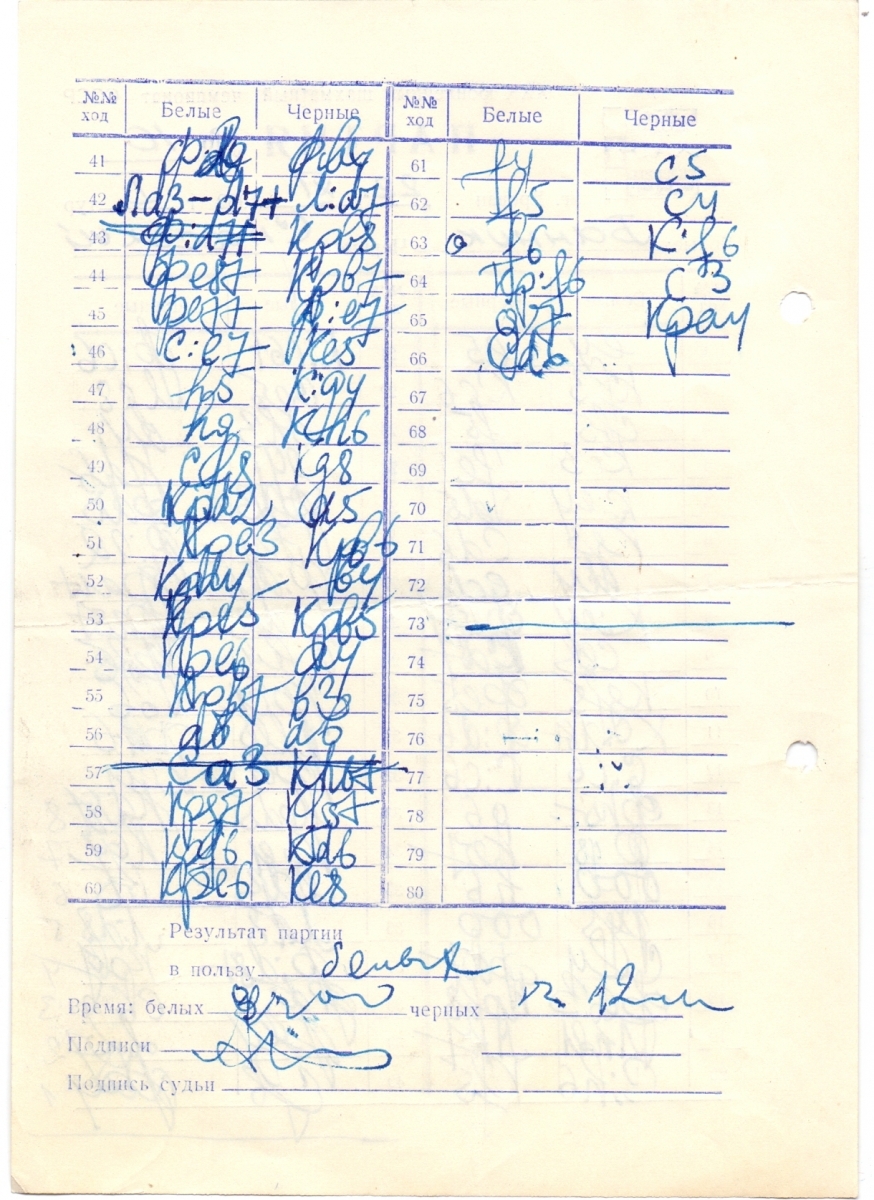 №№ ход Белые Черные
41
42 Ла3-d7+ Л:d7
43 Крb8
44 Фe8+ Крb7
45 Фe7+ Ф:e7
46 С:e7 Кe5
47 h5 К:g4
48 Кh6
49 Сf8 Кg8
50 a5
51 Крb6
52 b4
53 Крe5 Крb5
54 Крe6 a4
55 Крf7 b3
56 ab ab
57 Сa3 Кh6+
58 Крg7 Кf5+
59 Крg6 Кd6
60 Крe6 Кe8
№№ ход Белые Черные
61 f4 c5
62 f5 c4
63 f6 К:f6
64 Кр:f6 c3
65 g7 Крa4
66
67
68
69
70
71
72
73
74
75
76
77
78
79
80
Результат партии
в пользу белых
Время: белых черных 12 м
Подписи
Подпись судьи